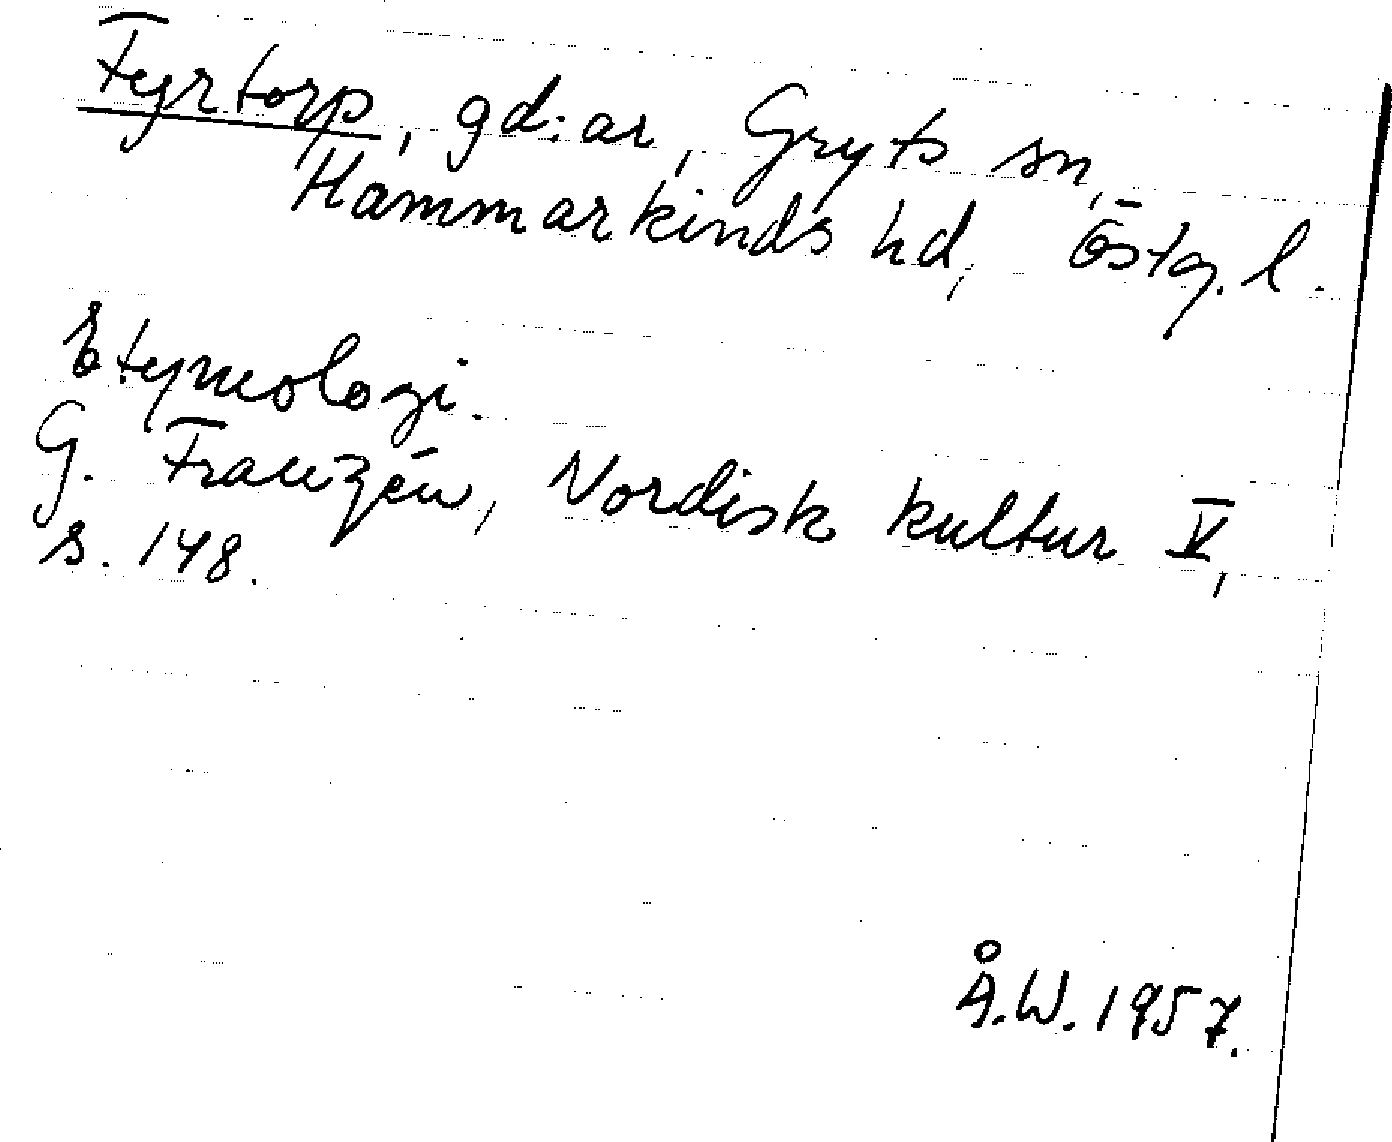 Fyrtorp, gd:ar, Gryts sn,
Hammarkinds hd, Östg. l.
Etymologi.
G. Franzén, Nordisk kultur V,
s. 148.
Å.W. 1957.